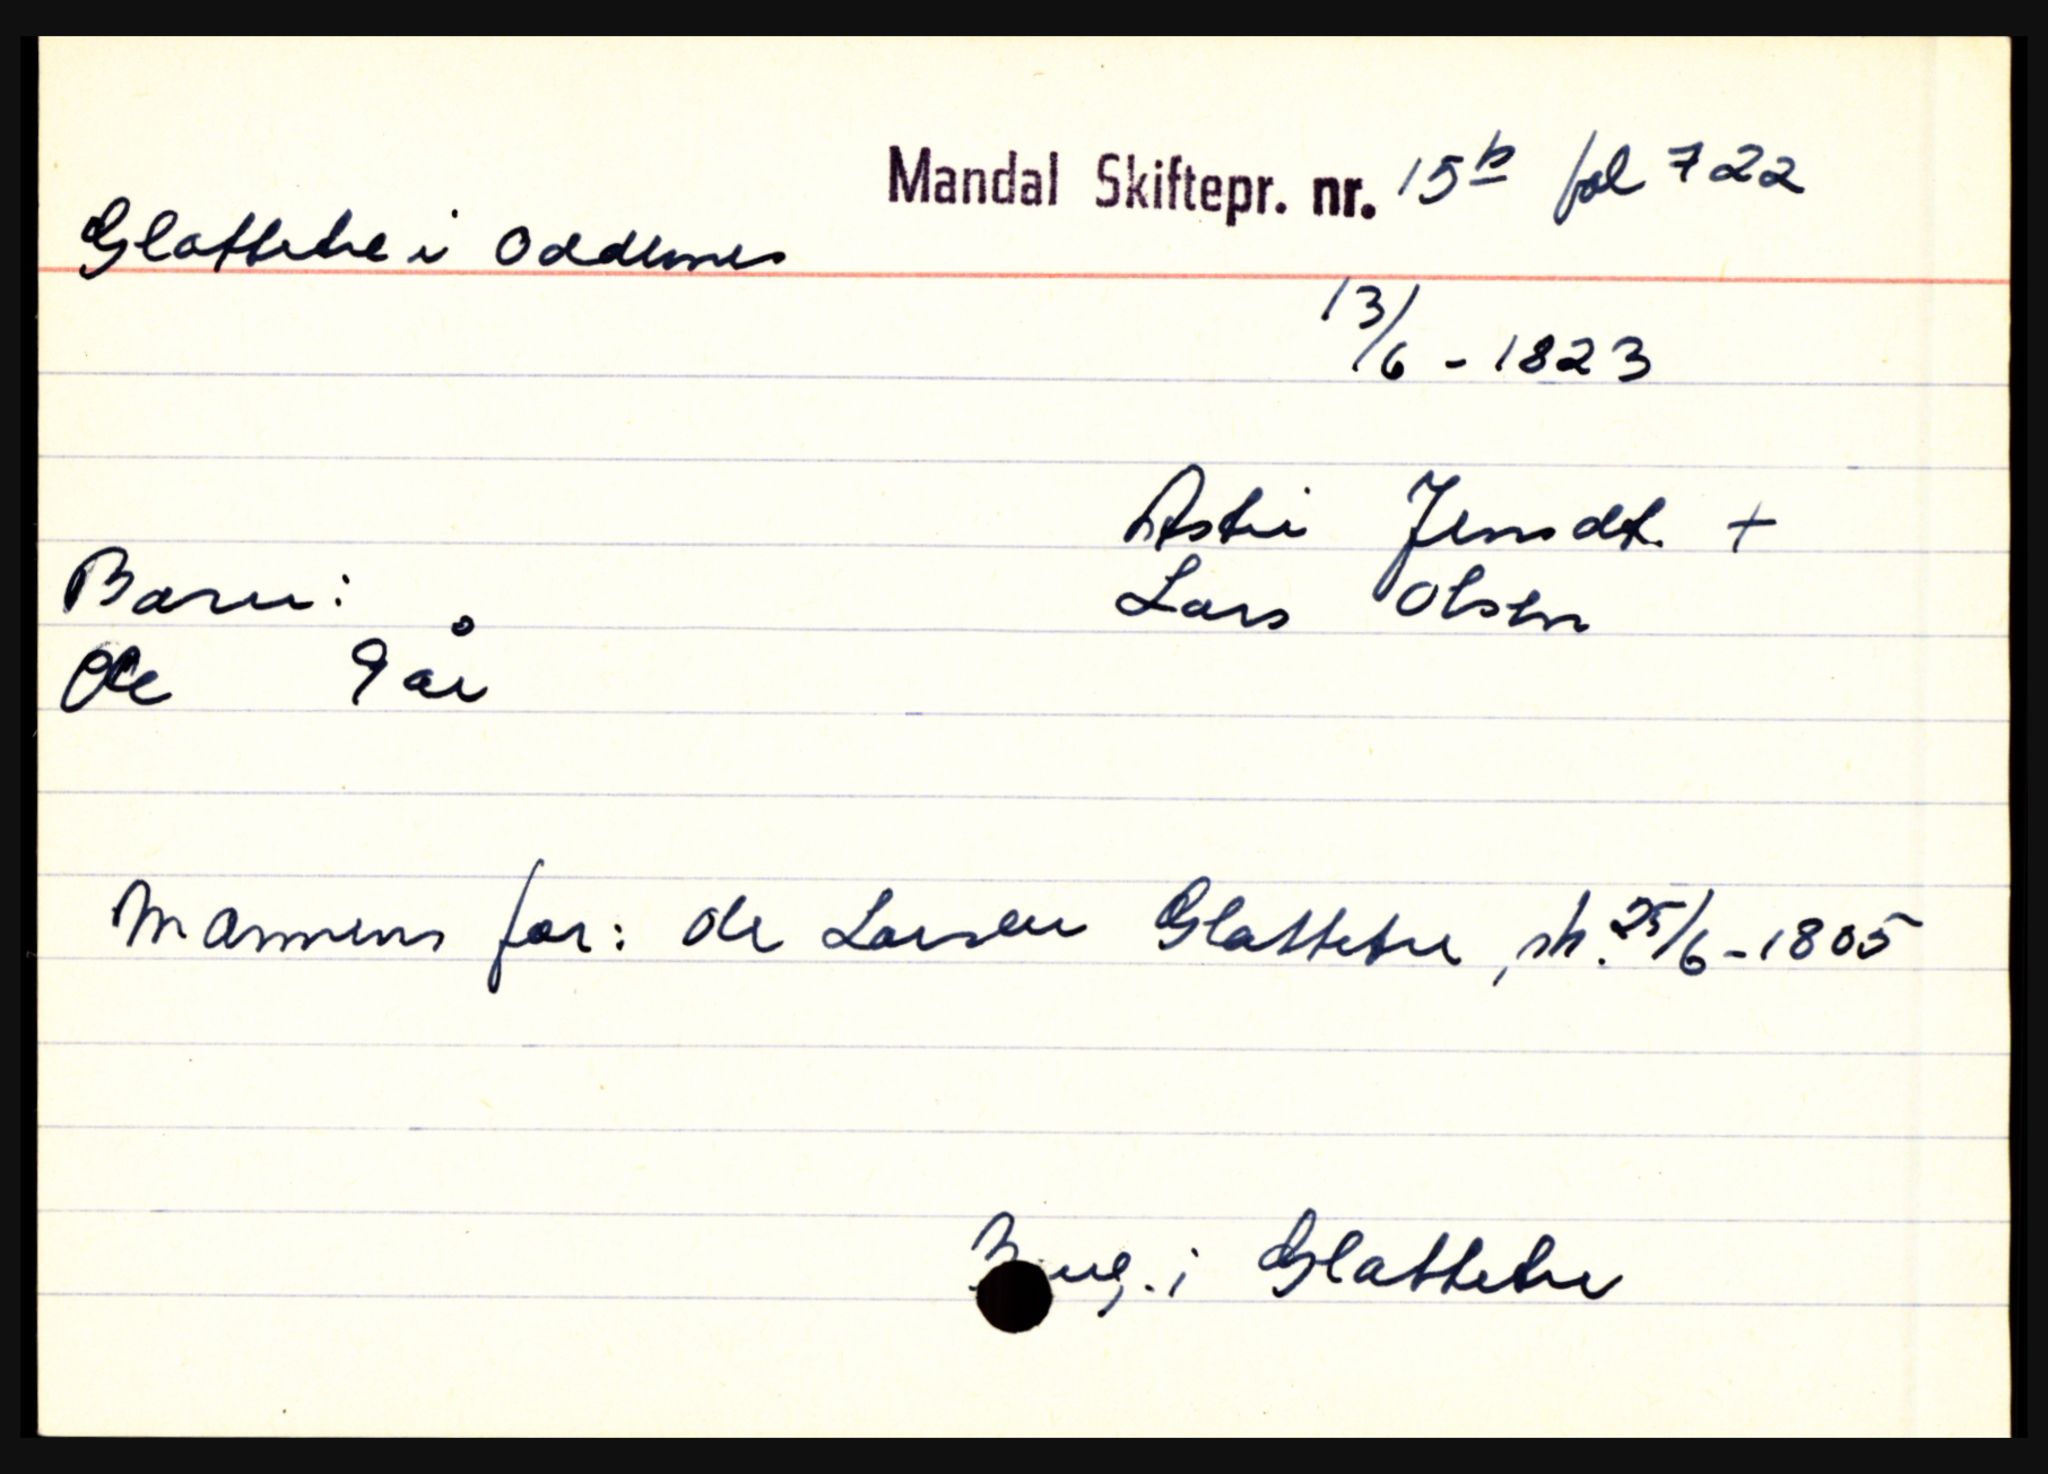 Mandal Skiftepr. nr. 15b fol 722
Glattetre i Oddernes
13/6 - 1823
Astri Jensdt. +
Barn:
Lars Olsen
Ole 9 år
Mannens far: Ole Larsen Glattetre, sk. 25/6 - 1805
i Glattetre